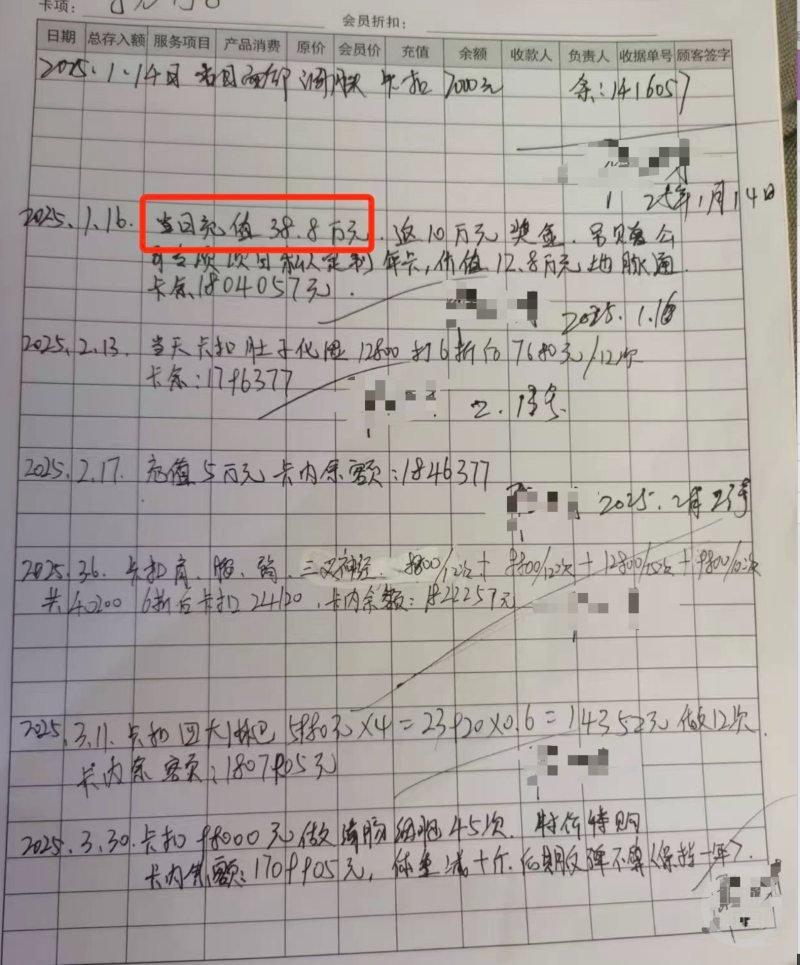 卡项：
会员折扣：
日期 总存入额 服务项目 产品消费 原价 会员价 充值 余额 收款人 负责人 收据单号 顾客签字
2025.1.14日 卡扣 7000元 余:1416057
25年1月14日
2025.1.16. 当日充值 38.8万元. 返10万元奖金.
专项项目私人定制年卡,价值12.8万元地脉通
卡余1804057元.
2025.1.16
2025.2.13. 当天卡扣肚子化 12800 打6折后7680元/12次
卡余:1796377
2.13号
2025.2.17. 充值5万元 卡内余额:1846377
2025.2月
2025.3.6. 卡扣肩、腸、三叉神经. 9800/12次+9800/12次+12800/15次+9800/10次
共40200 6折后卡扣24120.卡内余额:1822257元
2025.3.11. 卡扣四大淋巴 5980元×4=23920×0.6=14352元 做12次.
卡内余额:1807905元
2025.3.30.卡扣98000元做 45次. 特价特购
卡内余额:1709905元, 体重减十斤.后期反弹不算(保持一年).